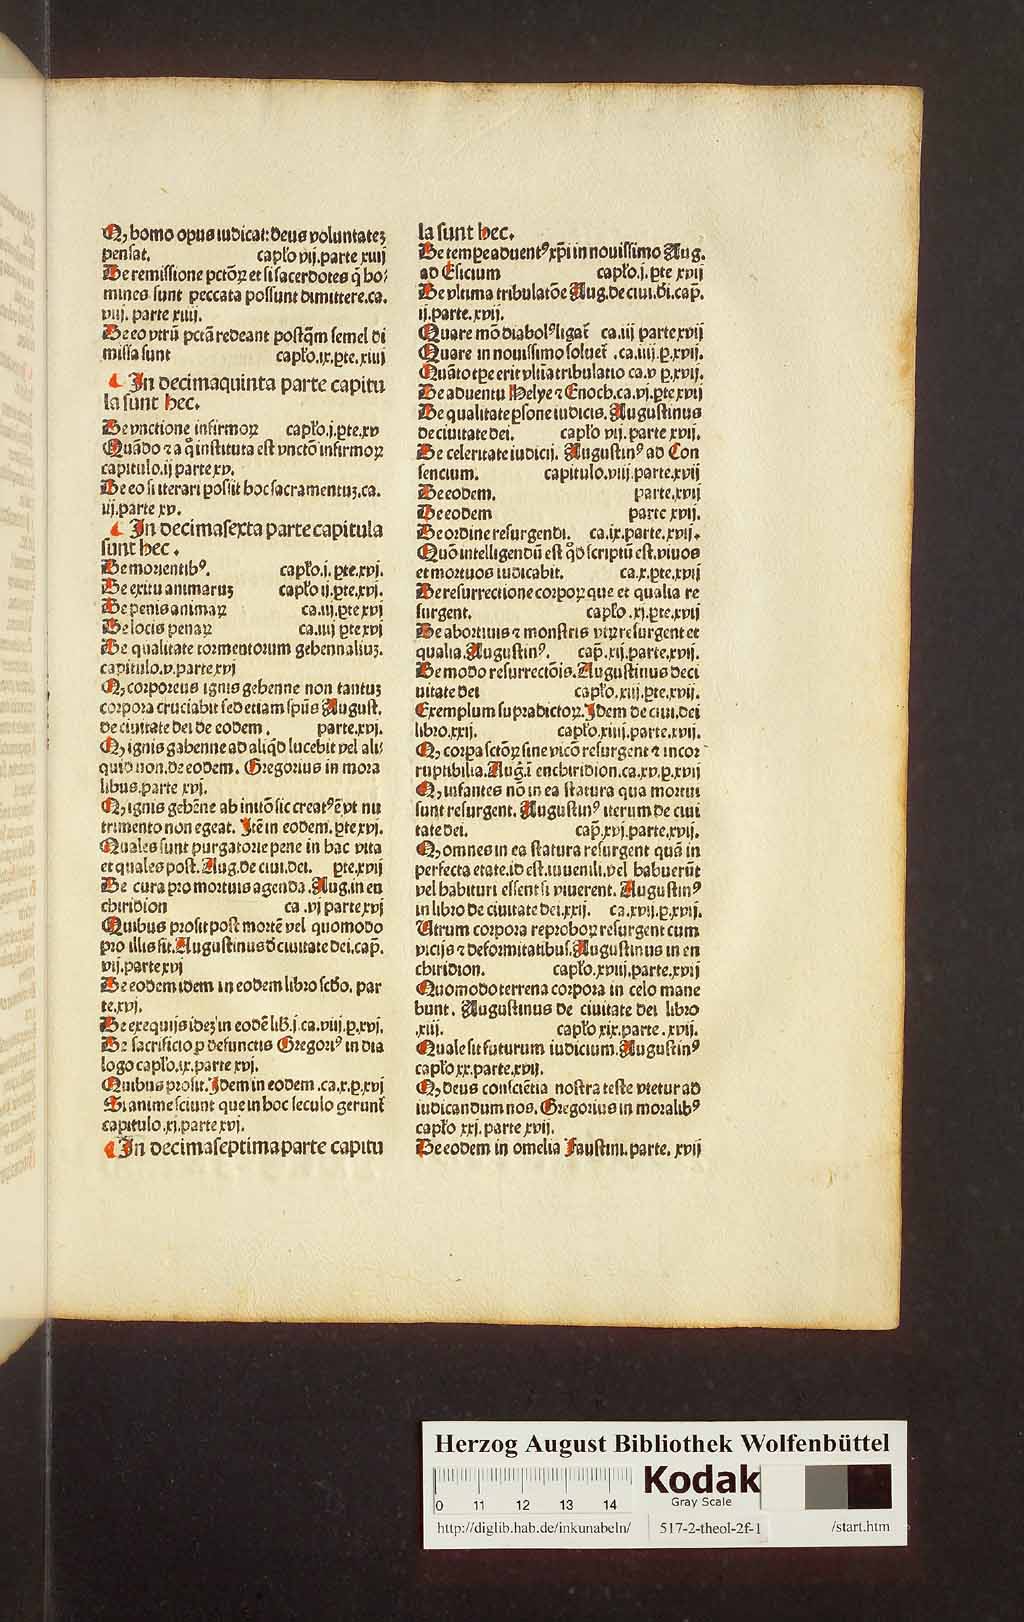 Q, homo opus iudicat: deus voluntateʒ
pensat. capło vij.parte xiiij
De remissione pctōꝝ et si sacerdotes q̄ ho⸗
mines sunt peccata possunt dimittere.ca.
viij. parte xiiij.
De eo vtrū pctā redeant postq̄m semel di
missa sunt capło.ix.ꝑte.xiiij
¶ In decimaquinta parte capitu
la sunt hec.
De vnctione infirmoꝝ capło.j.ꝑte.xv
Quādo ⁊ a quo instituta est vnctō infirmoꝝ
capitulo.ij parte xv.
De eo si iterari possit hoc sacramentuʒ.ca.
iij.parte xv.
¶ In decimasexta parte capitula
sunt hec.
De morientibꝰ. capło.j.ꝑte.xvj.
De exitu animaruʒ capło ij.ꝑte.xvj.
De penis animaꝝ ca.iij.ꝑte xvj
De locis penaꝝ ca.iiij ꝑte xvj
De qualitate tormentorum gehennaliuʒ.
capitulo.v.parte xvj
Q, corporeus ignis gehenne non tantuʒ
corpora cruciabit sed etiam spūs August.
de ciuitate dei de eodem. parte.xvj.
Q, ignis gabenne ad aliqd lucebit vel ali
quid non.de eodem. Gregorius in mora
libus.parte xvj.
Q, ignis gehēne ab initō sic creatꝰ ē vt nu
trimento non egeat. Itē in eodem.ꝑte xvj.
Quales sunt purgatorie pene in hac vita
et quales post. Aug.de ciui.dei. ꝑte.xvij
De cura pro mortuis agenda.Aug.in en
chiridion ca.vj parte xvj
Quibus prosit post mortē vel quomodo
pro illis fit.Augustinus d̄ ciuitate dei.cap̄.
vij.parte xvj
De eodem idem in eodem libro scdo. par
te.xvj.
De exequijs ideʒ in eodē lib.j.ca.viij.ꝑ.xvj.
De sacrificio ꝑ defunctis Gregoriꝰ in dia
logo capło.ix.parte xvj.
Quibus prosit.Idem in eodem.ca.x.ꝑ.xvj
Si anime sciunt que in hoc seculo gerunt̄
capitulo.xj.parte xvj.
¶ In decimaseptima parte capitu
la sunt hec.
De tempe aduentꝰ xp̄i in nouissimo Aug.
ad Esicium capło.j.ꝑte xvij
De vltima tribulatōe Aug.de ciui.di.cap̄.
ij.parte.xvij.
Quare mō diabolꝰ ligat̄ ca.iij parte xvij
Quare in nouissimo soluet̄.ca.iiij.ꝑ.xvij.
Quāto tꝑe erit vltīa tribulatio ca.v ꝑ.xvij.
De aduentu Helye ⁊ Enoch.ca.vj.ꝑte xvij
De qualitate ꝑsone iudicis.Augustinus
de ciuitate dei. capło vij.parte xvij.
De celeritate iudicij. Augustinꝰ ad Con
sencium. capitulo.viij.parte.xvij
De eodem. parte.xvij
De eodem parte xvij.
De ordine resurgendi. ca.ix.parte.xvij.
Quō intelligendū est qd̄ scriptū est.viuos
et mortuos iudicabit. ca.x.ꝑte.xvij
De resurrectione corpoꝝ que et qualia re
surgent. capło.xj.ꝑte.xvij
De abortiuis ⁊ monstris vtꝝ resurgent et
qualia.Augustinꝰ. cap̄.xij.parte.xvij.
De modo resurrectōis.Augustinus de ci
uitate dei capło.xiij.ꝑte.xvij.
Exemplum supradictoꝝ.Idem de ciui.dei
libro.xxij. capło.xiiij.parte.xvij.
Q, corpa sctōꝝ sine vicō resurgent ⁊ incor
ruptibilia.Aug.ī enchiridion.ca.xv.ꝑ.xvij
Q, infantes nō in ea statura qua mortui
sunt resurgent. Augustinꝰ iterum de ciui
tate dei. cap̄.xvj.parte,xvij.
Q, omnes in ea statura resurgent quā in
perfecta etate.id est.iuuenili.vel habuerūt
vel habituri essent si viuerent. Augustinꝰ
in libro de ciuitate dei.xxij. ca.xvij.ꝑ.xvij.
Utrum corpora reproboꝝ resurgent cum
vicijs ⁊ deformitatibus.Augustinus in en
chiridion. capło.xviij.parte.xvij
Quomodo terrena corpora in celo mane
bunt. Augustinus de ciuitate dei libro
.xiij. capło xix.parte.xvij.
Quale sit futurum iudicium.Augustinꝰ
capło xx.parte.xvij.
Q, deus consciētia nostra teste vtetur ad
iudicandum nos. Gregorius in moralibꝰ
capło xxj.parte xvij.
De eodem in omelia Faustini.parte.xvij
Herzog August Bibliothek Wolfenbüttel
0 11 12 13 14
Kodak
Gray Scale
http://diglib.hab.de/inkunabeln/ 517-2-theol-2f-1 /start.htm